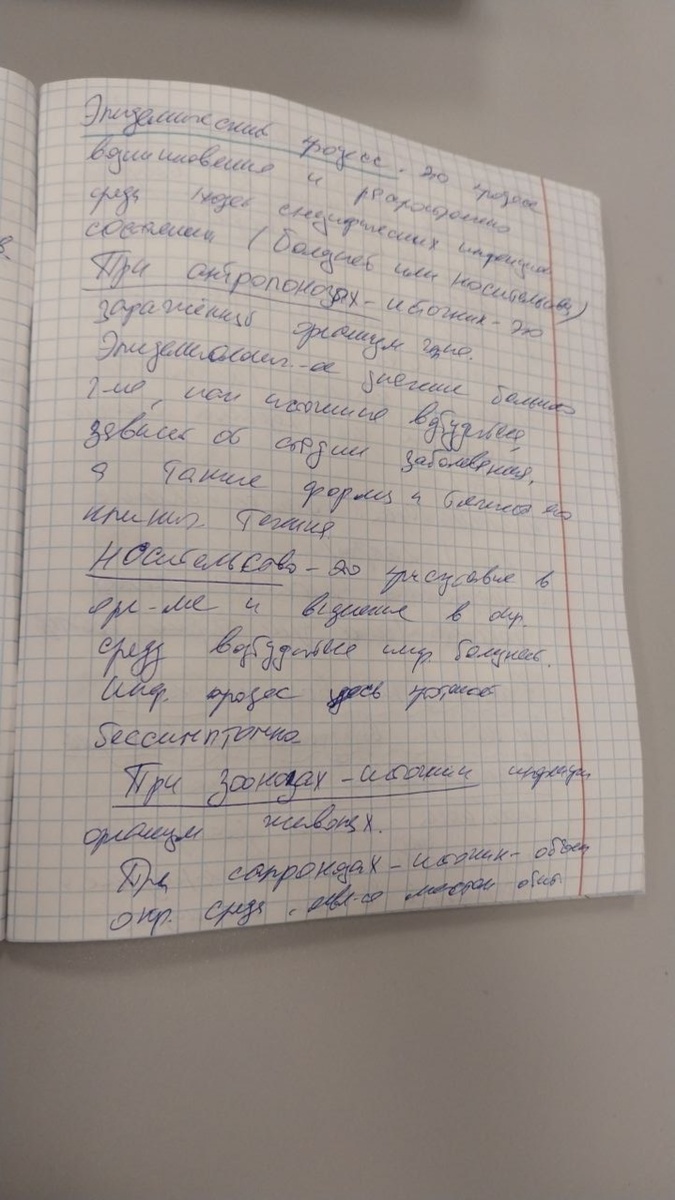 Эпидемический процесс - это процесс
возникновения и распространения
среди людей специфических инфекцион
состояний (болезней или носительства)
При антропонозах - источник - это
заражённый организм чело.
Эпидемиологич-ое значение больного
ч-ка, как источника возбудителя,
зависит об стадии заболевания,
а также формы и
клинич. течения
Носительство - это присутствие в
орг-ме и выделение в окр.
среду возбудителе инф. болезней.
Инф. процес здесь протекает
бессимптомно
При зоонозах - источник инфекции
организм животных.
При сапронозах - источник - объек
окр. среды, явл-ся местом обит